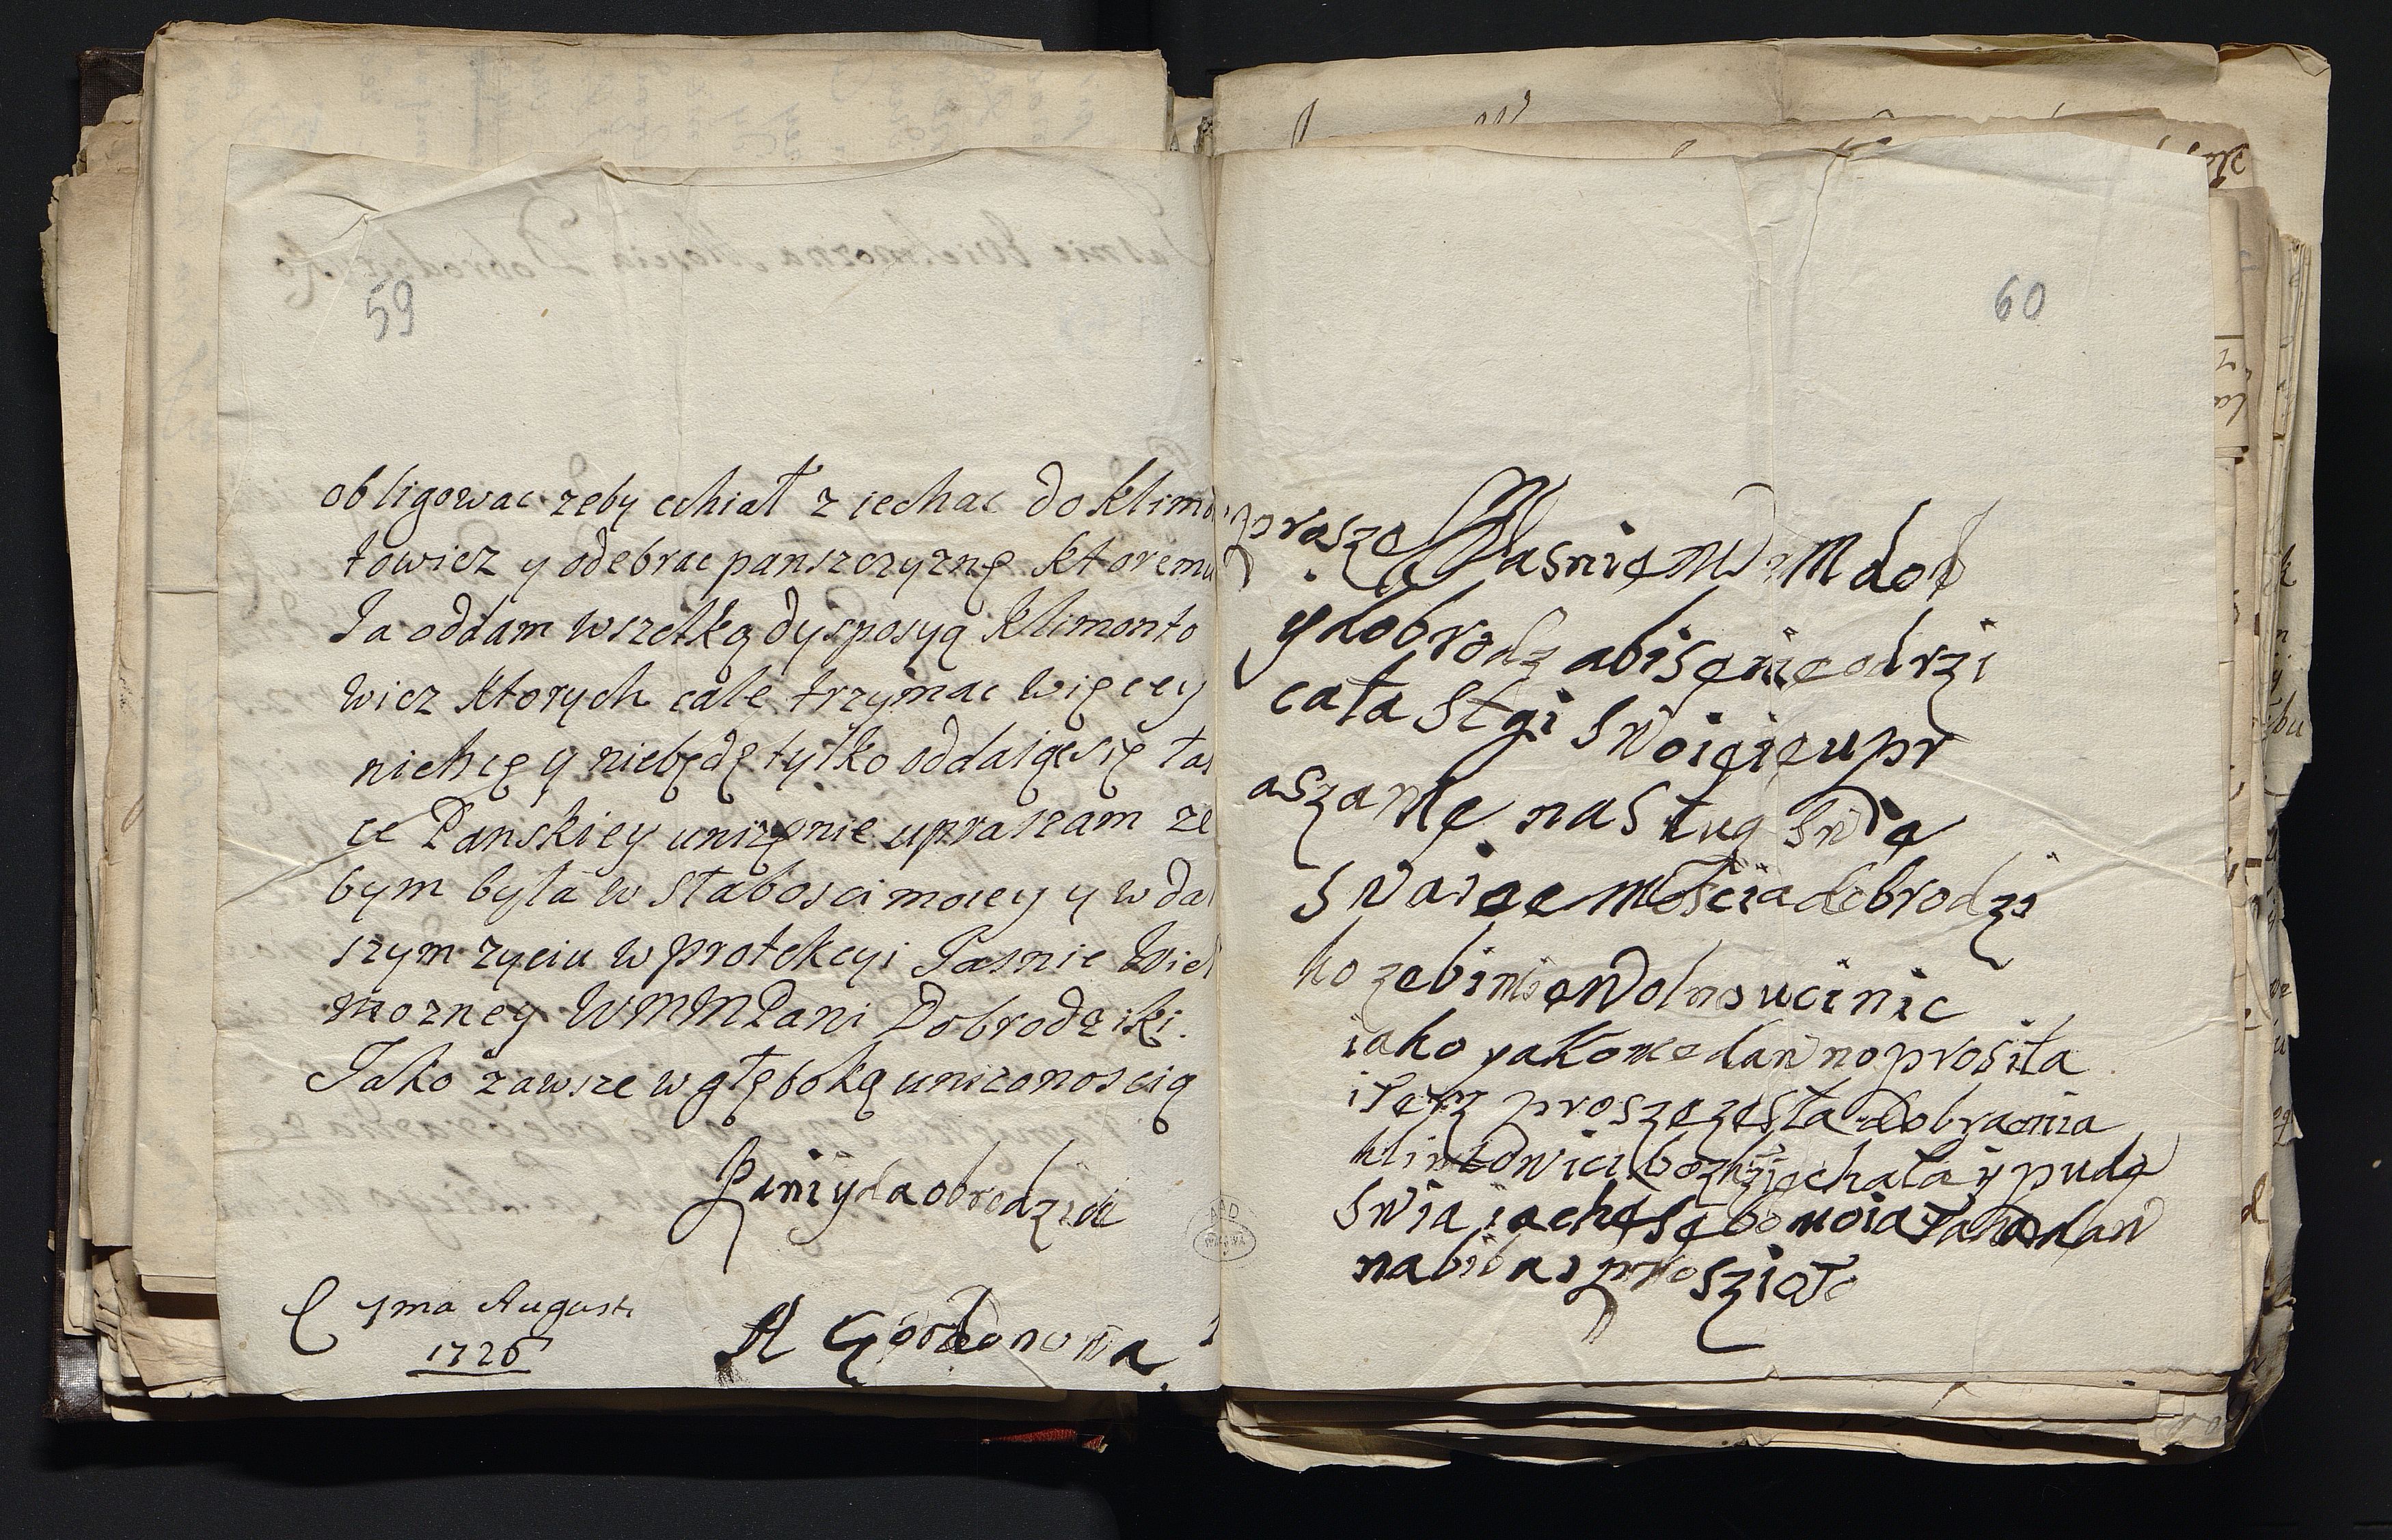 59
obligowac zeby chiał z iechac do klimo
towicz y odebrac panszczyznę ktoremu
Ja oddam wszelką dysposyą Klimonto
wicz ktorych całe trzymac więcey
niehcę y niebędę tylko oddaiąc się łas
ce Panskiey unizęnie upraszam ze
bym była w słabosci moiey y w dal
szym zyciu w protekcyi Jasnie Wiel
mozney WMMPani Dobrodziki.
Jako zawsze w głęboką unizonoscią
Pani y daobrodziki
yma Augusti
1726
A Gordonowa
60
prosze Jasnie W M dob
y dobrodz abi sęnieodrzi
cała Słgi Swoieięupr
aszamę na Sług
Swaiee Mościa dobrodzi
ko zebimięWolno ucinic
iako yakomedawno prosiła
proszę zęsta dobramia
iechała y pudę
Swia iachęsę bo moia daw
prosziało